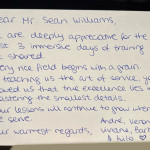 ear Mr Sean Williams,
are deeply appreciative for the
st 3 immersive days of training
shared.
ery rice field begins with a grain
teaching us the art of service, yo
owed us that true excellence lies
astering the smallest details.
ur lessons will continue to grow when
e serve.
ur warmest regards,
Andre, Veron
Viviane, Barb
& Julo